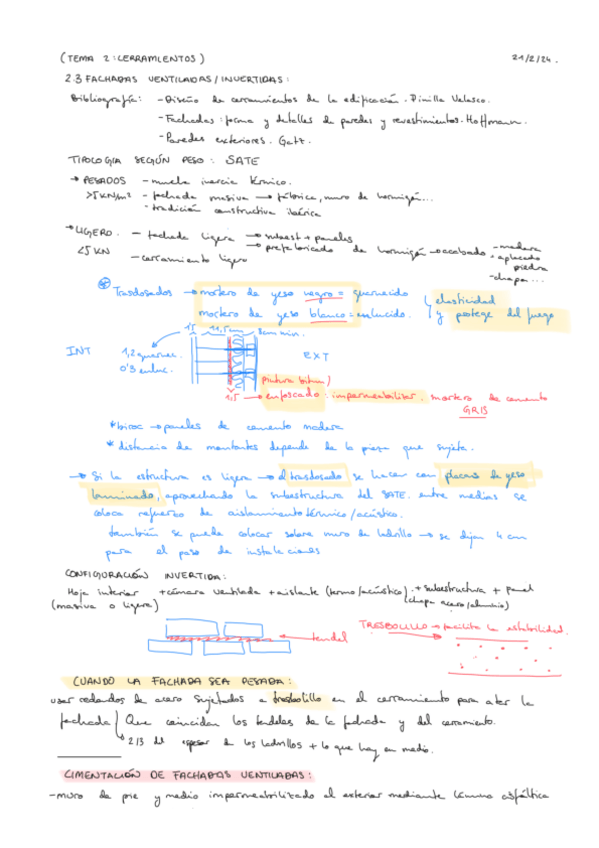 (TEMA 2: CERRAMIENTOS) 21/2/24.
2.3 FACHADAS VENTILADAS/INVERTIDAS:
Bibliografía: - Diseño de cerramientos de la edificación. Pinilla Velasco.
- Fachadas: forma y detalles de paredes y revestimientos. Hoffmann.
- Paredes exteriores. Gatt.
TIPOLOGIA SEGÚN PESO: SATE
→ PESADOS - mucha inercia térmica.
>5 KN/m² - fachada masiva → fábrica, muro de hormigón...
- tradición constructiva ibérica
→ LIGERO. - fachada ligera → subest + paneles
→ prefabricado de hormigón → acabado - madera
<5 KN - cerramiento ligero - aplacado piedra
- chapa...
* Trasdosados → mortero de yeso negro = guarnecido
mortero de yeso blanco = enlucido. elasticidad y protege del fuego
15 11,5cm 3cm min.
INT 1,2 guarnec. EXT
0'3 enluc.
pintura bitum/
1,5 → enfoscado: impermeabilizar. mortero de cemento GRIS
* biroc → paneles de cemento madera
* distancia de montantes depende de la pieza que sujeta.
→ Si la estructura es ligera → el trasdosado se hacer con placas de yeso
laminado, aprovechando la subestructura del SATE. entre medias se
coloca refuerzo de aislamiento térmico/acústico.
también se puede colocar sobre muro de ladrillo → se dejan 4 cm
para el paso de instalaciones
CONFIGURACIÓN INVERTIDA:
Hoja interior + cámara ventilada + aislante (termo/acústico) + subestructura + panel
(masiva o ligera) (chapa acero/aluminio)
tendel
TRESBOLILLO → facilita la estabilidad.
CUANDO LA FACHADA SEA PESADA:
usar redondos de acero sujetados a tresbolillo en el cerramiento para atar la
fachada Que coincidan los tendeles de la fachada y del cerramiento.
2/3 del espesor de los ladrillos + lo que hay en medio.
CIMENTACIÓN DE FACHADAS VENTILADAS:
- muro de pie y medio impermeabilizado al exterior mediante lámina asfáltica